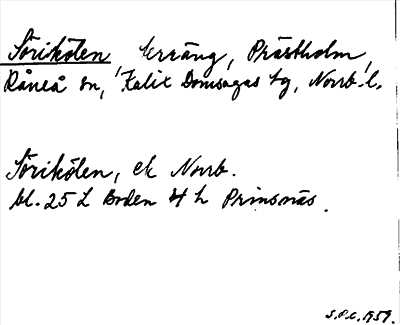 Sörikölen, terräng, Prästholm,
Råneå sn, Kalix Domsagas tg, Norrb. l.
Sörikölen, ek Norrb.
bl. 25 L Boden 4 h Prinsnäs.
S.P.C. 1959.